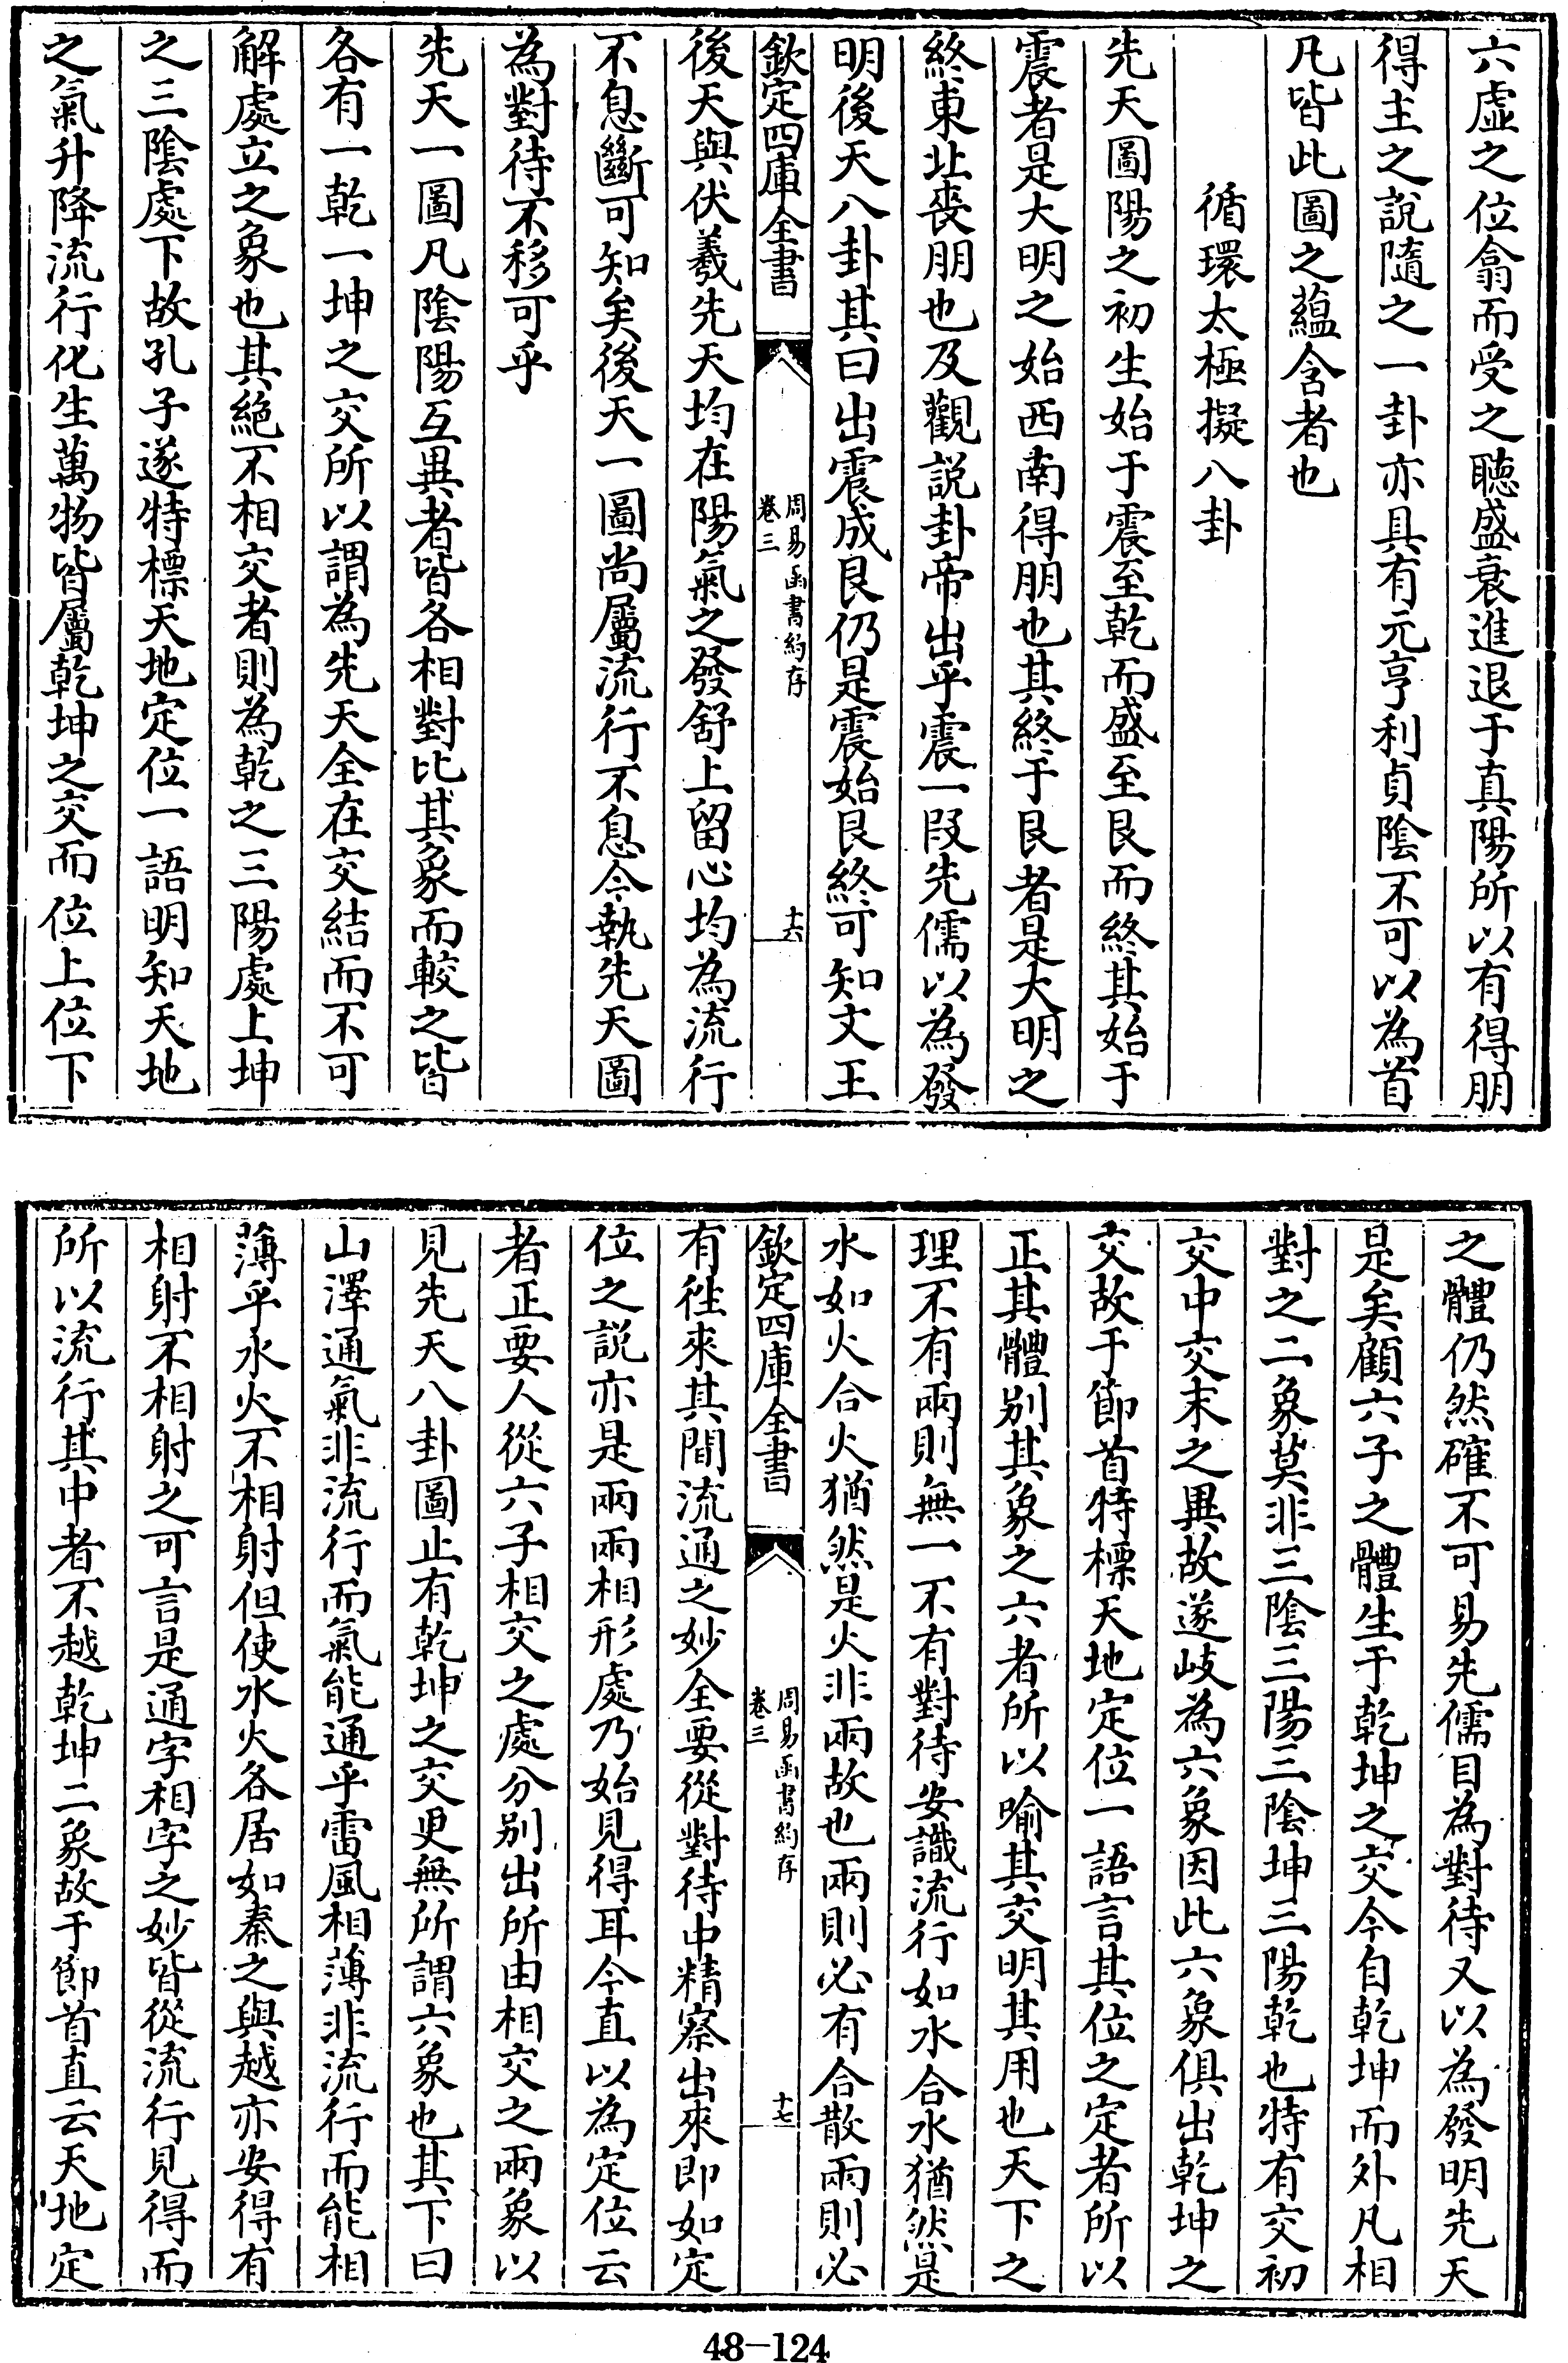 六虛之位翕而受之聽盛衰進退于真陽所以有得朋
得主之說隨之一卦亦具有元亨利貞陰不可以為首
凡皆此圖之蘊含者也
循環太極擬八卦
先天圖陽之初生始于震至乾而盛至艮而終其始于
震者是大明之始西南得朋也其終于艮者是大明之
終東北喪朋也及觀說卦帝出乎震一段先儒以為發
明後天八卦其曰出震成艮仍是震始艮終可知文王
欽定四庫全書
周易函書約存
卷三
十六
後天與伏羲先天均在陽氣之發舒上留心均為流行
不息斷可知矣後天一圖尚屬流行不息今執先天圖
為對待不移可乎
先天一圖凡陰陽互異者皆各相對比其象而較之皆
各有一乾一坤之交所以謂為先天全在交結而不可
解處立之象也其絕不相交者則為乾之三陽處上坤
之三陰處下故孔子遂特標天地定位一語明知天地
之氣升降流行化生萬物皆屬乾坤之交而位上位下
之體仍然確不可易先儒目為對待又以為發明先天
是矣顧六子之體生于乾坤之交今自乾坤而外凡相
對之二象莫非三陰三陽三陰坤三陽乾也特有交初
交中交末之異故遂岐為六象因此六象俱出乾坤之
交故于節首特標天地定位一語言其位之定者所以
正其體別其象之六者所以喻其交明其用也天下之
理不有兩則無一不有對待安識流行如水合水猶然是
水如火合火猶然是火非兩故也兩則必有合散兩則必
欽定四庫全書
周易函書約存
卷三
十七
有徃來其間流通之妙全要從對待中精察出來即如定
位之說亦是兩兩相形處乃始見得耳今直以為定位云
者正要人從六子相交之處分別出所由相交之兩象以
見先天八卦圖止有乾坤之交更無所謂六象也其下曰
山澤通氣非流行而氣能通乎雷風相薄非流行而能相
薄乎水火不相射但使水火各居如秦之與越亦安得有
相射不相射之可言是通字相字之妙皆從流行見得而
所以流行其中者不越乾坤二象故于節首直云天地定
48-124